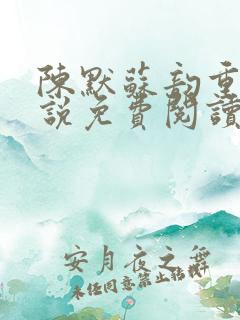 陳默蘇韵重
說免費閱讀
安月夜之舞
未经同意禁止转载